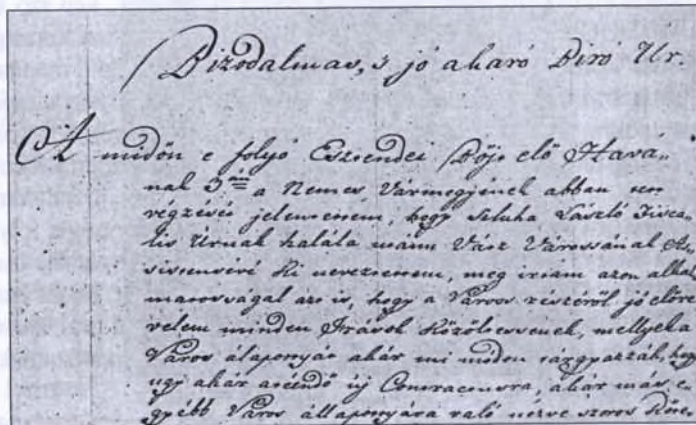 Bizodalmas, s jó akaró Biró Ur.
A midőn e folyó Esztendei Böjt elő Havá„
nak 5ik a Nemes Vármegyének abban tett
végzését jelentettem, hogy Szluha László Fisca„
lis Úrnak halála után Vátz Várossának As„
sistensévé ki neveztettem, meg irtam azon alkal
matossággal azt is, hogy a Város részéről jó előre
velem minden Irások közöltessenek, mellyek a
Város álapottyát akár mi modon tárgyazzák, hogy
ugy akár ujj Contractusra, akár más e„
gyébb Város állapottyára való nézve szoros